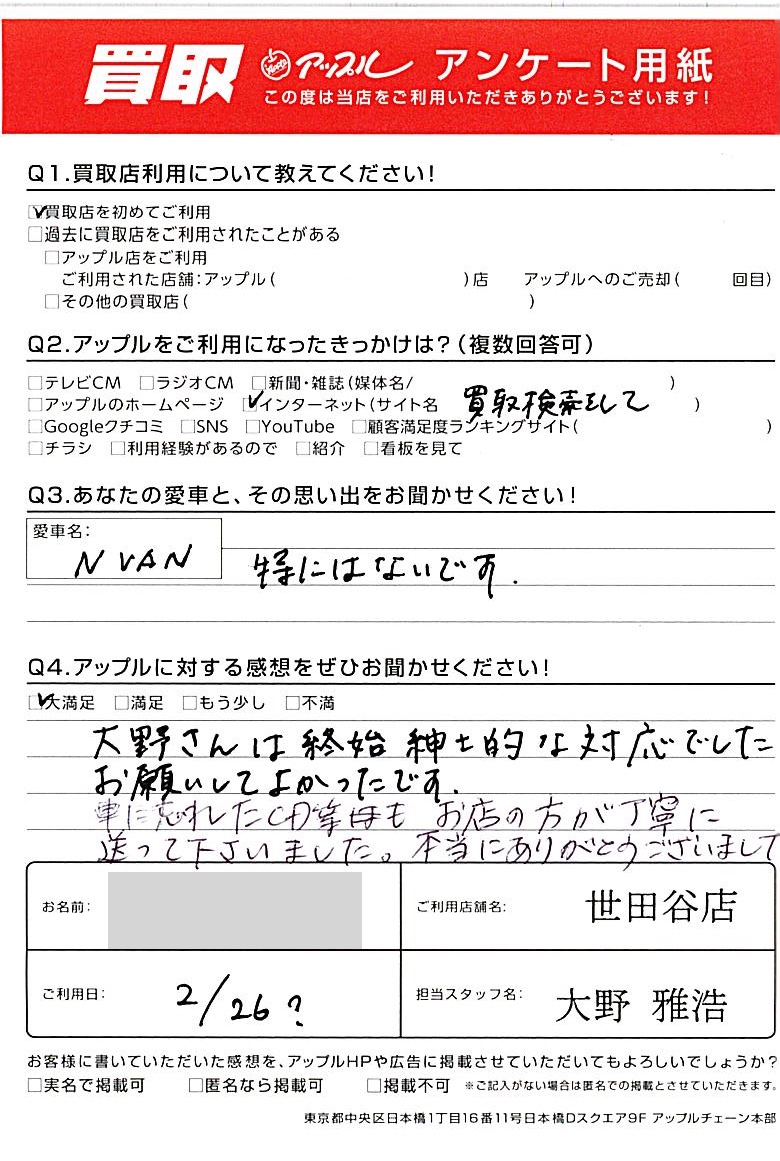 買取 アップル アンケート用紙
この度は当店をご利用いただきありがとうございます!
Q1.買取店利用について教えてください!
買取店を初めてご利用
過去に買取店をご利用されたことがある
アップル店をご利用
ご利用された店舗:アップル( )店 アップルへのご売却( 回目)
その他の買取店( )
Q2.アップルをご利用になったきっかけは?(複数回答可)
テレビCM ラジオCM 新聞・雑誌(媒体名/ )
アップルのホームページ インターネット(サイト名 買取検索をして )
Googleクチコミ SNS YouTube 顧客満足度ランキングサイト( )
チラシ 利用経験があるので 紹介 看板を見て
Q3.あなたの愛車と、その思い出をお聞かせください!
愛車名:
N VAN 特にはないです.
Q4.アップルに対する感想をぜひお聞かせください!
大満足 満足 もう少し 不満
大野さんは終始紳士的な対応でした
お願いしてよかったです.
車に忘れたCD等も お店の方が丁寧に
送って下さいました。本当にありがとうございまして
お名前: ご利用店舗名: 世田谷店
ご利用日: 2/26? 担当スタッフ名: 大野 雅浩
お客様に書いていただいた感想を、アップルHPや広告に掲載させていただいてもよろしいでしょうか?
実名で掲載可 匿名なら掲載可 掲載不可 ※ご記入がない場合は匿名での掲載とさせていただきます。
東京都中央区日本橋1丁目16番11号日本橋Dスクエア9F アップルチェーン本部